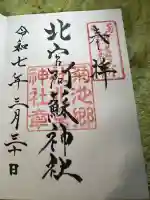 奉拝
北宮阿蘇神社
菊池郷
神社章
令和七年三月三十日